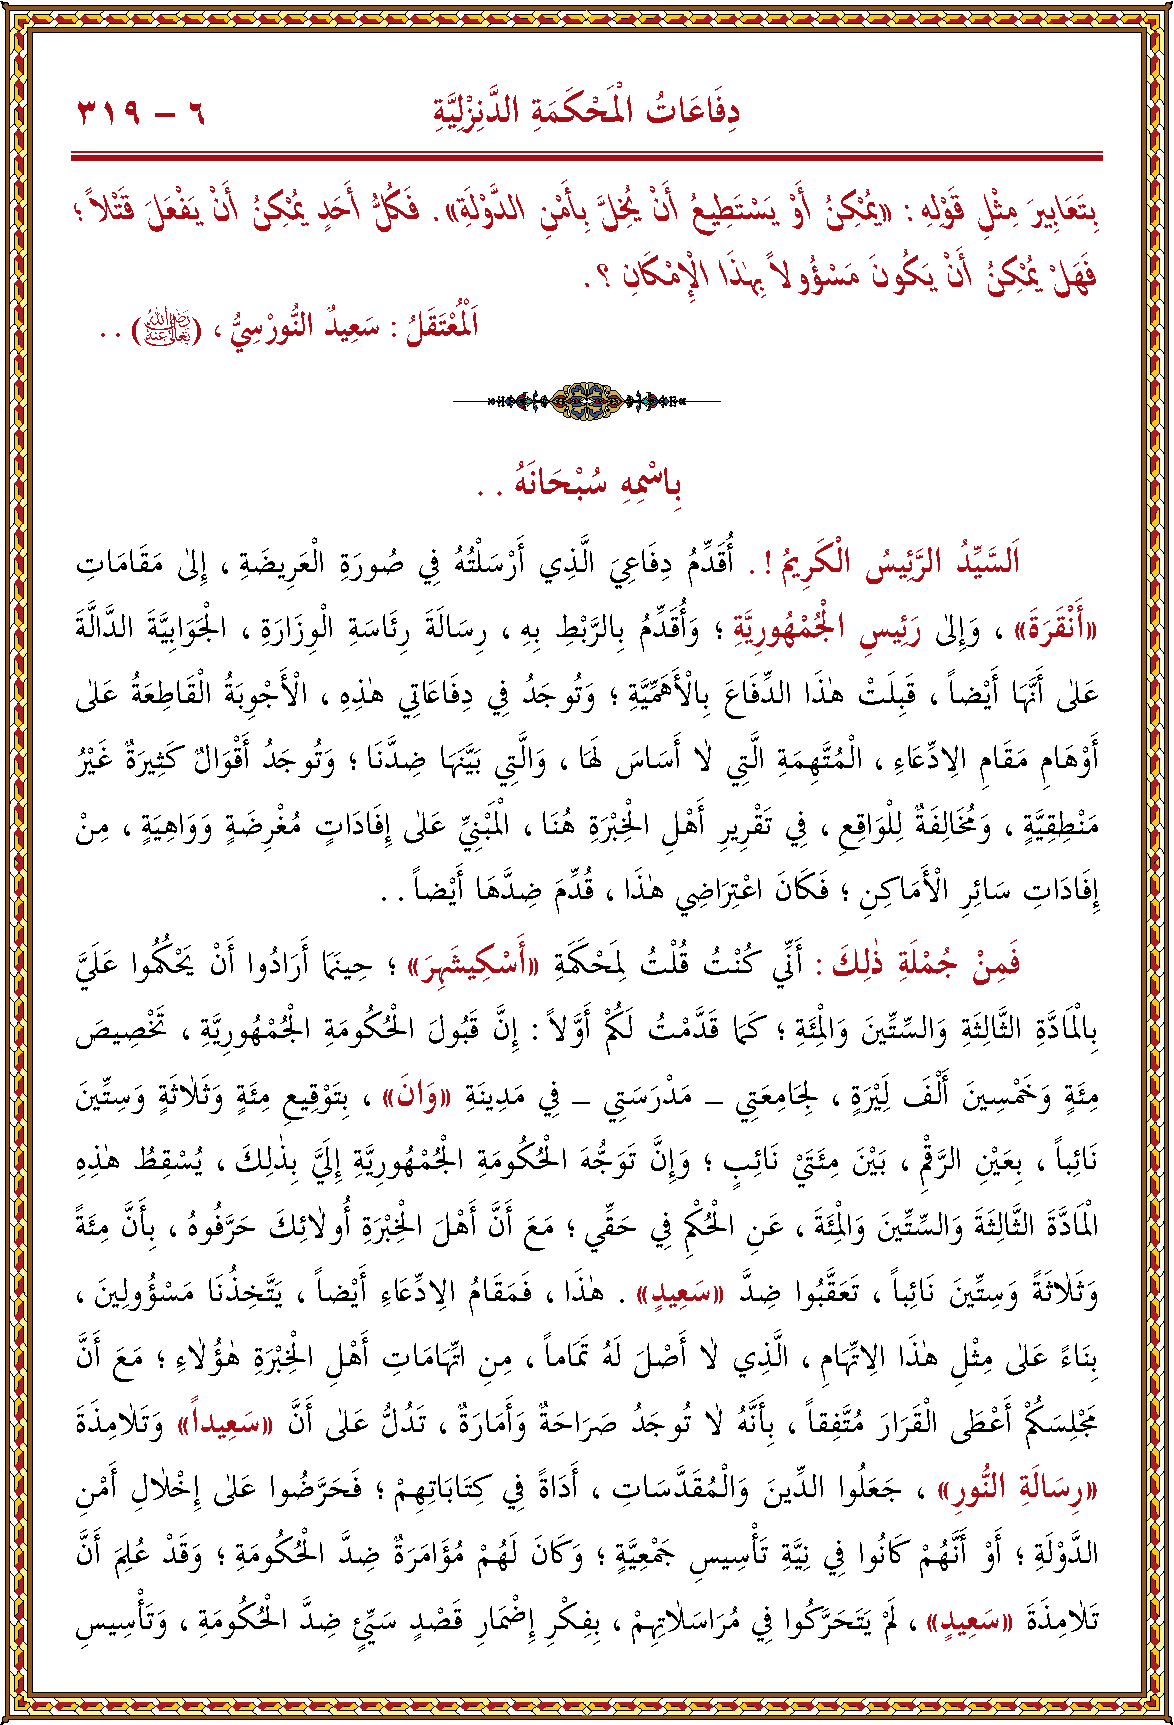 ٦ – ٣١٩ دِفَاعَاتُ الْمَحْكَمَةِ الدَّنِزْلِيَّةِ
بِتَعَابِيرَ مِثْلِ قَوْلِهِ : «يُمْكِنُ أَوْ يَسْتَطِيعُ أَنْ يُخِلَّ بِأَمْنِ الدَّوْلَةِ» . فَكُلُّ أَحَدٍ يُمْكِنُ أَنْ يَفْعَلَ قَتْلاً ؛
فَهَلْ يُمْكِنُ أَنْ يَكُونَ مَسْؤُولاً بِهٰذَا الْإِمْكَانِ ؟ .
اَلْمُعْتَقَلُ : سَعِيدٌ النُّورْسِيُّ ، (رضي الله تعالى عنه) . .
بِاسْمِهِ سُبْحَانَهُ . .
اَلسَّيِّدُ الرَّئِيسُ الْكَرِيمُ ! . أُقَدِّمُ دِفَاعِيَ الَّذِي أَرْسَلْتُهُ فِي صُورَةِ الْعَرِيضَةِ ، إِلَى مَقَامَاتِ
«أَنْقَرَةَ» ، وَإِلَى رَئِيسِ الْجُمْهُورِيَّةِ ؛ وَأُقَدِّمُ بِالرَّبْطِ بِهِ ، رِسَالَةَ رِئَاسَةِ الْوِزَارَةِ ، الْجَوَابِيَّةَ الدَّالَّةَ
عَلَى أَنَّهَا أَيْضاً ، قَبِلَتْ هٰذَا الدِّفَاعَ بِالْأَهَمِّيَّةِ ؛ وَتُوجَدُ فِي دِفَاعَاتِي هٰذِهِ ، الْأَجْوِبَةُ الْقَاطِعَةُ عَلَى
أَوْهَامِ مَقَامِ الِادِّعَاءِ ، الْمُتَّهِمَةِ الَّتِي لَا أَسَاسَ لَهَا ، وَالَّتِي بَيَّنَهَا ضِدَّنَا ؛ وَتُوجَدُ أَقْوَالٌ كَثِيرَةٌ غَيْرُ
مَنْطِقِيَّةٍ ، وَمُخَالِفَةٌ لِلْوَاقِعِ ، فِي تَقْرِيرِ أَهْلِ الْخِبْرَةِ هُنَا ، الْمَبْنِيِّ عَلَى إِفَادَاتٍ مُغْرِضَةٍ وَوَاهِيَةٍ ، مِنْ
إِفَادَاتِ سَائِرِ الْأَمَاكِنِ ؛ فَكَانَ اعْتِرَاضِي هٰذَا ، قُدِّمَ ضِدَّهَا أَيْضاً . .
فَمِنْ جُمْلَةِ ذٰلِكَ : أَنِّي كُنْتُ قُلْتُ لِمَحْكَمَةِ «أَسْكِيشَهِرَ» ؛ حِينَمَا أَرَادُوا أَنْ يَحْكُمُوا عَلَيَّ
بِالْمَادَّةِ الثَّالِثَةِ وَالسِّتِّينَ وَالْمِئَةِ ؛ كَمَا قَدَّمْتُ لَكُمْ أَوَّلاً : إِنَّ قَبُولَ الْحُكُومَةِ الْجُمْهُورِيَّةِ ، تَخْصِيصَ
مِئَةٍ وَخَمْسِينَ أَلْفَ لَيْرَةٍ ، لِجَامِعَتِي – مَدْرَسَتِي – فِي مَدِينَةِ «وَانَ» ، بِتَوْقِيعِ مِئَةٍ وَثَلَاثَةٍ وَسِتِّينَ
نَائِباً ، بِعَيْنِ الرَّقْمِ ، بَيْنَ مِئَتَيْ نَائِبٍ ؛ وَإِنَّ تَوَجُّهَ الْحُكُومَةِ الْجُمْهُورِيَّةِ إِلَيَّ بِذٰلِكَ ، يُسْقِطُ هٰذِهِ
الْمَادَّةَ الثَّالِثَةَ وَالسِّتِّينَ وَالْمِئَةَ ، عَنِ الْحُكْمِ فِي حَقِّي ؛ مَعَ أَنَّ أَهْلَ الْخِبْرَةِ أُولَائِكَ حَرَّفُوهُ ، بِأَنَّ مِئَةً
وَثَلَاثَةً وَسِتِّينَ نَائِباً ، تَعَقَّبُوا ضِدَّ «سَعِيدٍ» . هٰذَا ، فَمَقَامُ الِادِّعَاءِ أَيْضاً ، يَتَّخِذُنَا مَسْؤُولِينَ ،
بِنَاءً عَلَى مِثْلِ هٰذَا الِاتِّهَامِ ، الَّذِي لَا أَصْلَ لَهُ تَمَاماً ، مِنِ اتِّهَامَاتِ أَهْلِ الْخِبْرَةِ هٰؤُلَاءِ ؛ مَعَ أَنَّ
مَجْلِسَكُمْ أَعْطَى الْقَرَارَ مُتَّفِقاً ، بِأَنَّهُ لَا تُوجَدُ صَرَاحَةٌ وَأَمَارَةٌ ، تَدُلُّ عَلَى أَنَّ «سَعِيداً» وَتَلَامِذَةَ
«رِسَالَةِ النُّورِ» ، جَعَلُوا الدِّينَ وَالْمُقَدَّسَاتِ ، أَدَاةً فِي كِتَابَاتِهِمْ ؛ فَحَرَّضُوا عَلَى إِخْلَالِ أَمْنِ
الدَّوْلَةِ ؛ أَوْ أَنَّهُمْ كَانُوا فِي نِيَّةِ تَأْسِيسِ جَمْعِيَّةٍ ؛ وَكَانَ لَهُمْ مُؤَامَرَةٌ ضِدَّ الْحُكُومَةِ ؛ وَقَدْ عُلِمَ أَنَّ
تَلَامِذَةَ «سَعِيدٍ» ، لَمْ يَتَحَرَّكُوا فِي مُرَاسَلَاتِهِمْ ، بِفِكْرِ إِضْمَارِ قَصْدٍ سَيِّئٍ ضِدَّ الْحُكُومَةِ ، وَتَأْسِيسِ